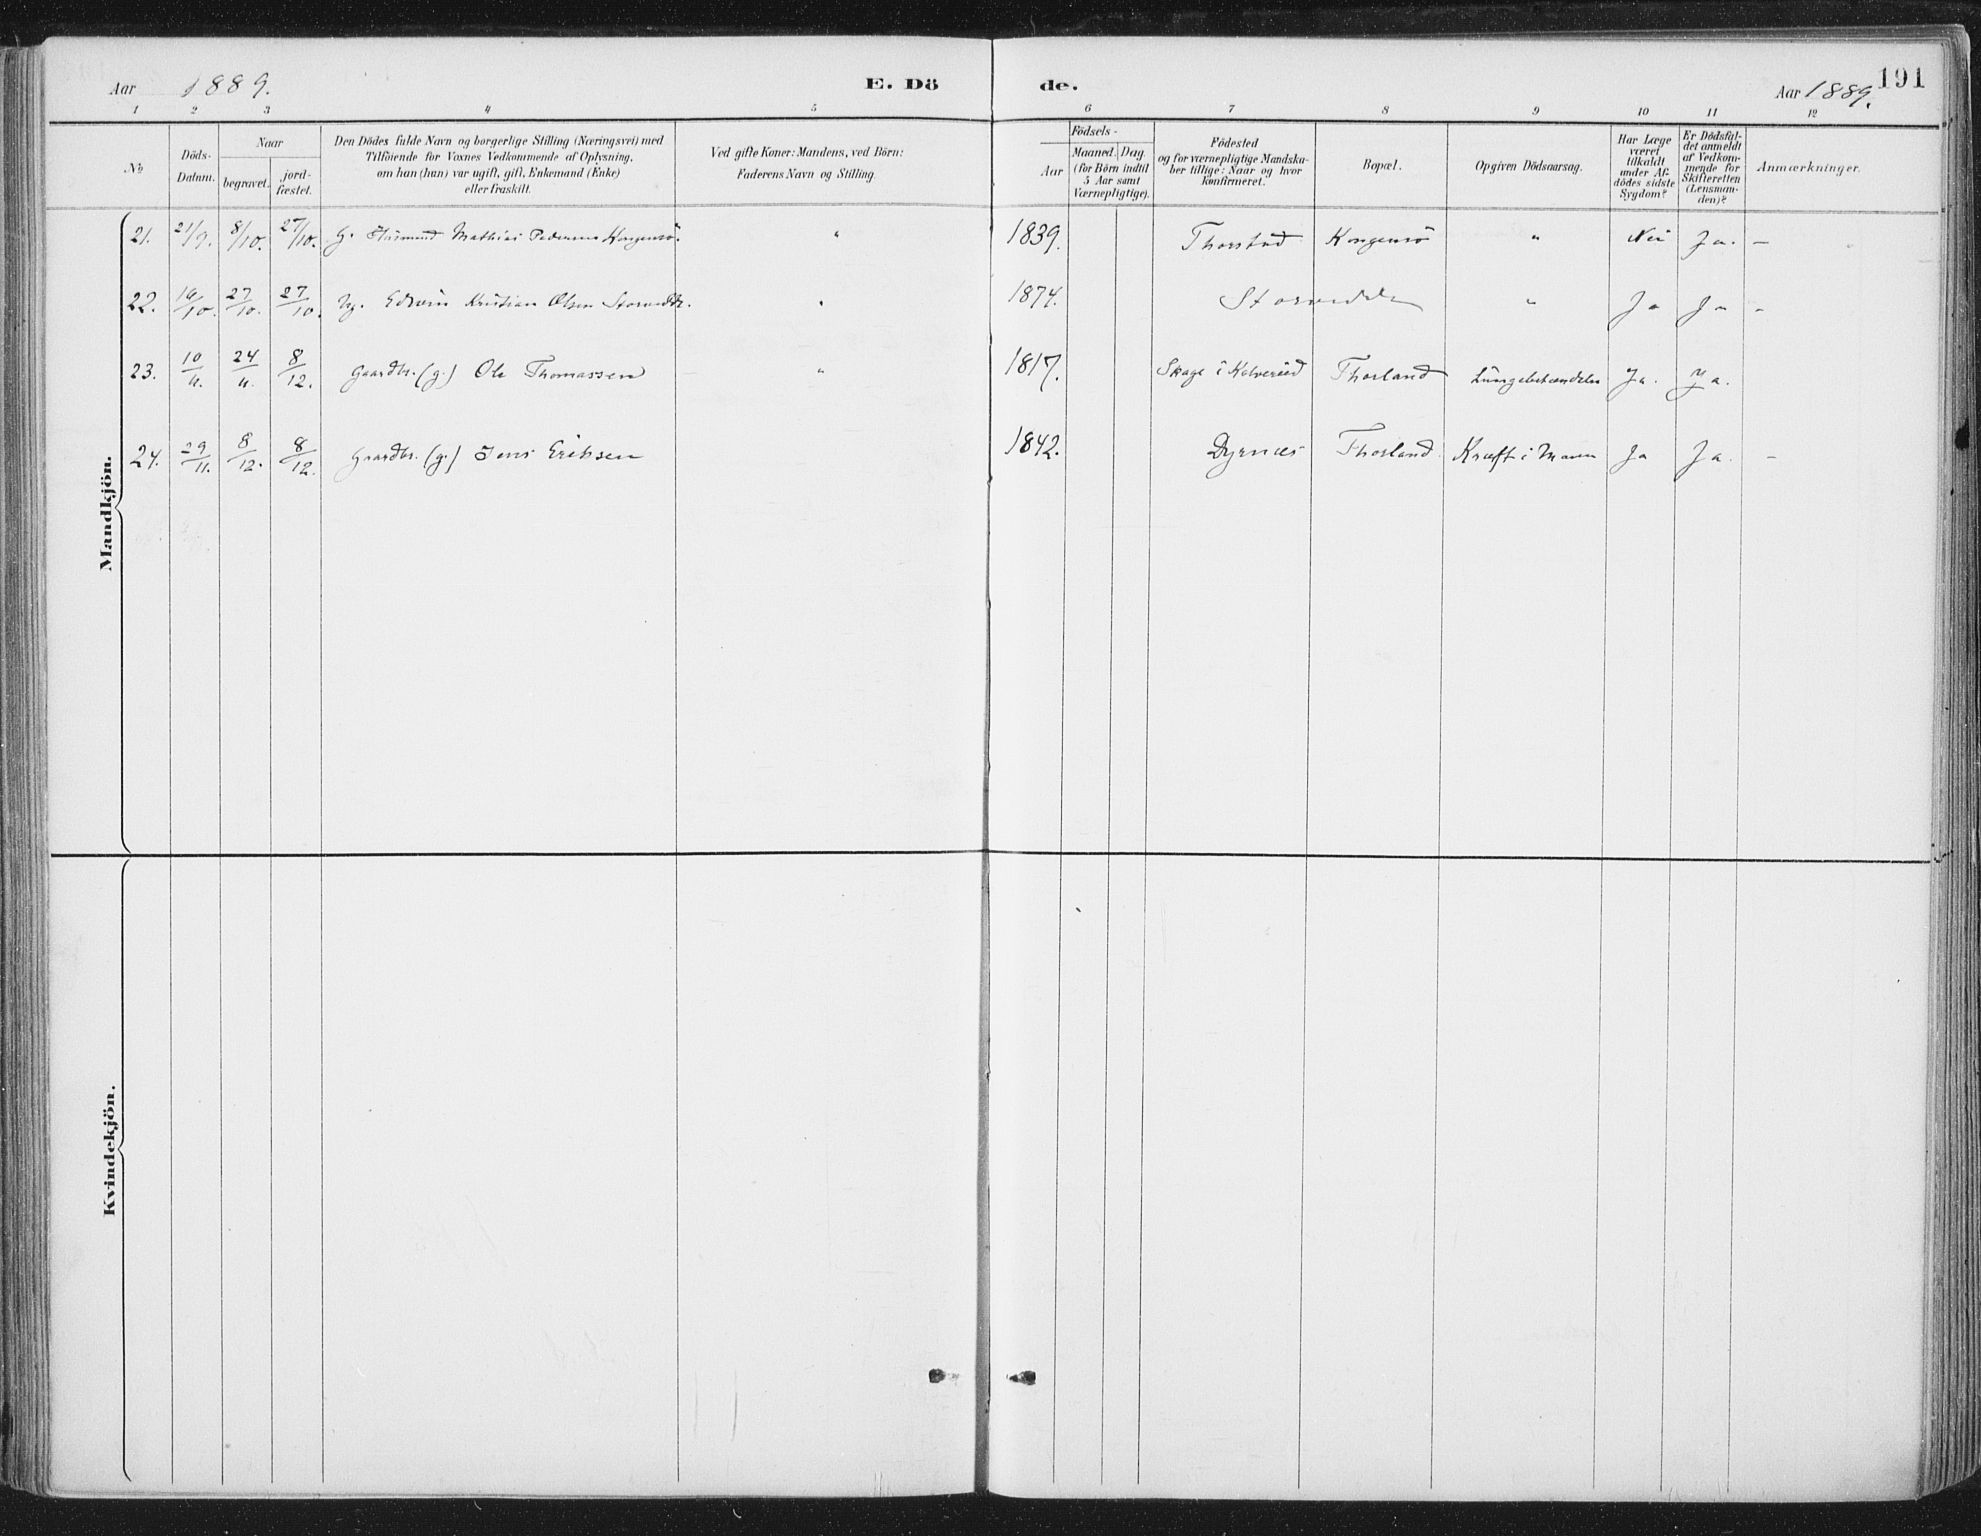 Aar 1889. E. Dö de. Aar 1889. 191
1 2 3 4 5 6 7 8 9 10 11 12
No
Döds-
Datum.
Naar
begravet.
jord-
fæstet.
Den Dödes fulde Navn og borgerlige Stilling (Næringsvei) med
Tilföiende for Voxnes Vedkommende af Oplysning,
om han (hun) var ugift, gift, Enkemand (Enke)
eller fraskilt.
Ved gifte Koner: Mandens, ved Börn:
Faderens Navn og Stilling.
Födsels-
Aar
Maaned. Dag.
(for Börn indtil
5 Aar samt
Værnepligtige).
Födested
og for værnepligtige Mandska-
ber tillige: Naar og hvor
konfirmeret.
Bopæl.
Opgiven Dödsaarsag.
Har Læge
været
tilkaldt
under Af-
dödes sidste
Sygdom?
Er Dödsfal-
det anmeldt
af Vedkom-
mende for
Skifteretten
(Lensman-
den)?
Anmærkninger.
Mandkjön.
21. 21/9. 8/10. 27/10. G. Husmand Mathias Pedersen Kongensö. " 1839. Thorstad Kongensö " Nei Ja. —
22. 16/10. 27/10. 27/10. Ug. Edvin Kristian Olsen " 1874. " Ja Ja –
23. 10/11. 24/11. 8/12. Gaardbr. (g.) Ole Thomassen " 1817. Skage i Kolvereid Thorland Lungebetændelse Ja. Ja.
24. 29/11. 8/12. 8/12. Gaardbr. (g.) Jens Eriksen 1842. Dyrnæs Thorland Kræft i Maven Ja Ja. –
Kvindekjön.